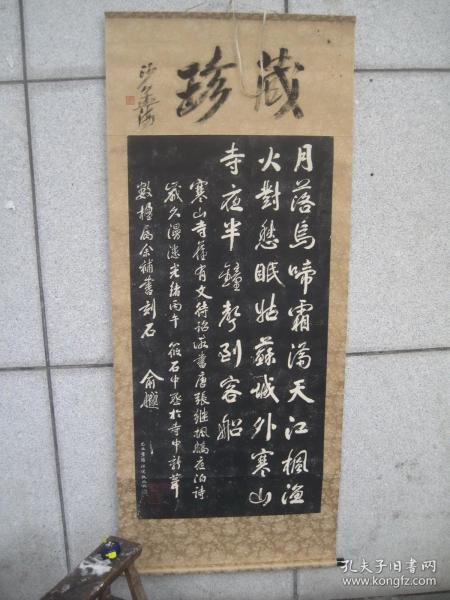 藏珍
月落烏啼霜滿天江楓漁
火對愁眠姑蘇城外寒山
寺夜半鐘聲到客船
寒山寺舊有文待詔所書唐張繼楓橋夜泊詩
歲久漫漶光緒丙午筱石中丞於寺中新葺
數楹屬余補書刻石
俞樾
孔夫子旧书网
www.kongfz.com